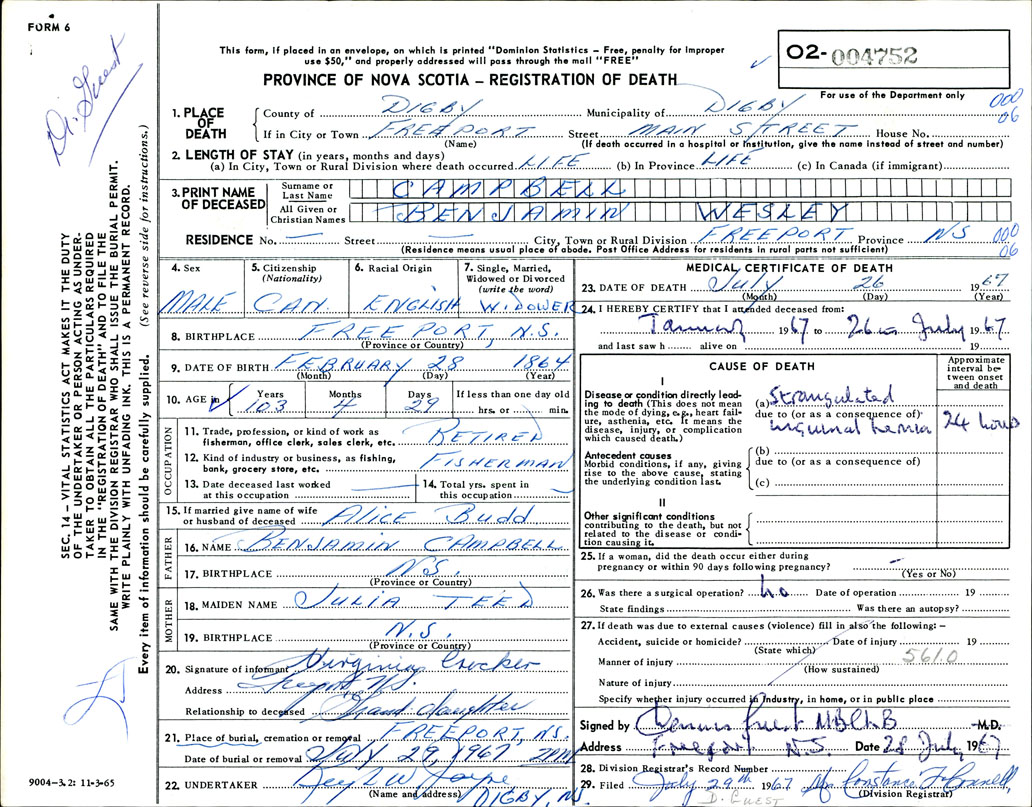 FORM 6
Dr. Guest
This form, if placed in an envelope, on which is printed "Dominion Statistics – Free, penalty for improper
use $50," and properly addressed will pass through the mail "FREE"
PROVINCE OF NOVA SCOTIA – REGISTRATION OF DEATH
02-004752
For use of the Department only
000
06
1. PLACE OF DEATH County of DIGBY Municipality of DIGBY
If in City or Town FREEPORT Street MAIN STREET House No.
(Name) (If death occurred in a hospital or institution, give the name instead of street and number)
2. LENGTH OF STAY (in years, months and days)
(a) In City, Town or Rural Division where death occurred LIFE (b) In Province LIFE (c) In Canada (if immigrant)
3. PRINT NAME OF DECEASED Surname or Last Name CAMPBELL
All Given or Christian Names BENJAMIN WESLEY
RESIDENCE No. — Street — City, Town or Rural Division FREEPORT Province NS
(Residence means usual place of abode. Post Office Address for residents in rural parts not sufficient)
000
06
4. Sex MALE
5. Citizenship (Nationality) CAN.
6. Racial Origin ENGLISH
7. Single, Married, Widowed or Divorced (write the word) WIDOWER
8. BIRTHPLACE FREEPORT, N.S.
(Province or Country)
9. DATE OF BIRTH FEBRUARY 28 1864
(Month) (Day) (Year)
10. AGE in Years 103 Months 4 Days 29 If less than one day old
hrs. or min.
OCCUPATION
11. Trade, profession, or kind of work as fisherman, office clerk, sales clerk, etc. RETIRED
12. Kind of industry or business, as fishing, bank, grocery store, etc. FISHERMAN
13. Date deceased last worked at this occupation
14. Total yrs. spent in this occupation
15. If married give name of wife or husband of deceased Alice Budd
FATHER
16. NAME BENJAMIN CAMPBELL
17. BIRTHPLACE N.S.
(Province or Country)
MOTHER
18. MAIDEN NAME JULIA TEED
19. BIRTHPLACE N.S.
(Province or Country)
20. Signature of informant Virginia Crocker
Address Freeport N.S.
Relationship to deceased Grand daughter
21. Place of burial, cremation or removal FREEPORT, N.S.
Date of burial or removal JULY 29, 1967 2PM
22. UNDERTAKER
(Name and address) DIGBY, NS.
MEDICAL CERTIFICATE OF DEATH
23. DATE OF DEATH July 26 1967
(Month) (Day) (Year)
24. I HEREBY CERTIFY that I attended deceased from:
January 1967 to 26 July 1967
and last saw h alive on 19
CAUSE OF DEATH
Approximate interval between onset and death
I
Disease or condition directly leading to death (This does not mean the mode of dying, e.g., heart failure, asthenia, etc. It means the disease, injury, or complication which caused death.)
(a) Strangulated
due to (or as a consequence of)
inguinal hernia 24 hours
Antecedent causes
Morbid conditions, if any, giving rise to the above cause, stating the underlying condition last.
(b)
due to (or as a consequence of)
(c)
II
Other significant conditions
contributing to the death, but not related to the disease or condition causing it.
25. If a woman, did the death occur either during
pregnancy or within 90 days following pregnancy? –
(Yes or No)
26. Was there a surgical operation? no Date of operation 19
State findings Was there an autopsy?
27. If death was due to external causes (violence) fill in also the following: –
Accident, suicide or homicide? Date of injury 19
(State which)
Manner of injury 561.0
(How sustained)
Nature of injury
Specify whether injury occurred in industry, in home, or in public place
Signed by Guest M.B.Ch.B –M.D.
Address Freeport N.S. Date 28 July 1967
28. Division Registrar's Record Number
29. Filed July 29th 1967 Mrs Constance
(Division Registrar)
D. GUEST
SEC. 14 – VITAL STATISTICS ACT MAKES IT THE DUTY
OF THE UNDERTAKER OR PERSON ACTING AS UNDER-
TAKER TO OBTAIN ALL THE PARTICULARS REQUIRED
IN THE "REGISTRATION OF DEATH" AND TO FILE THE
SAME WITH THE DIVISION REGISTRAR WHO SHALL ISSUE THE BURIAL PERMIT.
WRITE PLAINLY WITH UNFADING INK. THIS IS A PERMANENT RECORD.
Every item of information should be carefully supplied. (See reverse side for instructions.)
9004–3.2: 11-3-65